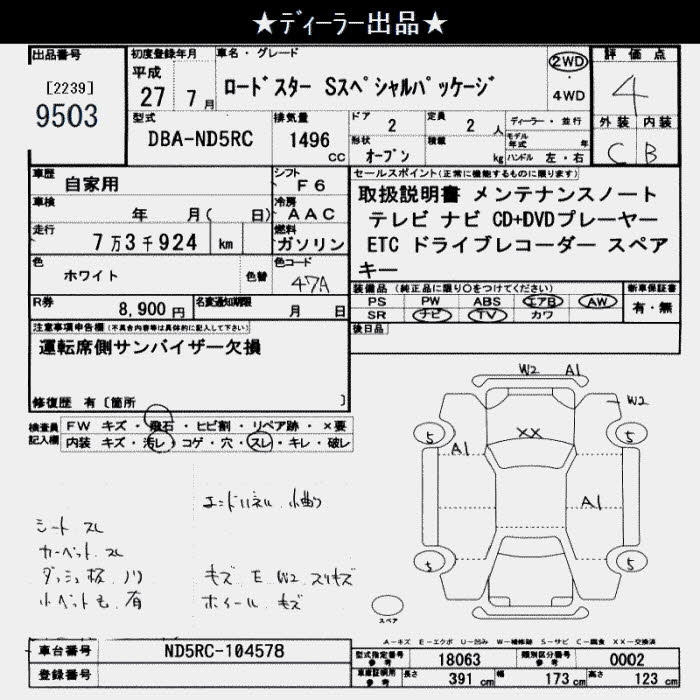 ★ディーラー出品★
出品番号
[2239]
9503
初度登録年月
平成
27年 7月
車名・グレード
ロードスター Sスペシャルパッケージ
2WD
・
4WD
評価点
4
外装 内装
C B
型式
DBA-ND5RC
排気量
1496
CC
ドア
2
定員
2
人
ディーラー・並行
モデル年式 年
形状
オープン
積載
kg
ハンドル 左・右
車歴
自家用
シフト
F6
車検
年 月( 日)
冷房
AAC
走行
7万3千924 km
燃料
ガソリン
色
ホワイト
色替
色コード
47A
R券
8,900円
名変通知期限
月 日
セールスポイント(正常に機能するものに限ります)
取扱説明書 メンテナンスノート
テレビ ナビ CD+DVDプレーヤー
ETC ドライブレコーダー スペア
キー
装備品 (純正品に限り○をつけてください)
PS PW ABS エアB AW
SR ナビ TV カワ
新車保証書
有・無
後日品
注意事項申告欄(不具合内容等は具体的に記入して下さい)
運転席側サンバイザー欠損
修復歴 有〔箇所 〕
検査員記入欄
FW キズ・飛石・ヒビ割・リペア跡・×要
内装 キズ・汚レ・コゲ・穴・スレ・キレ・破レ
エンドパネル 小曲り
シート スレ
カーペット スレ
ダッシュ板 ノリ
有
キズ E W2 スリキズ
ホイール キズ
W2 A1
W2
XX
5 5
A1
A1
5 5
スペア
A-キズ E-エクボ U-凹み W-補修跡 S-サビ C-腐食 XX-交換済
車台番号
ND5RC-104578
登録番号
型式指定番号
参考
18063
類別区分番号
参考
0002
車庫証明用
参考
長さ
391 cm
幅
173 cm
高さ
123 cm